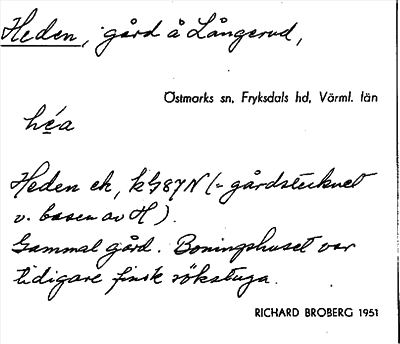 Heden, gård å Långerud,
Östmarks sn, Fryksdals hd, Värml. län
héa
Heden ek, kG87N (= gårdstecknet
v. basen av H).
Gammal gård. Boningshuset var
tidigare finsk rökstuga.
RICHARD BROBERG 1951